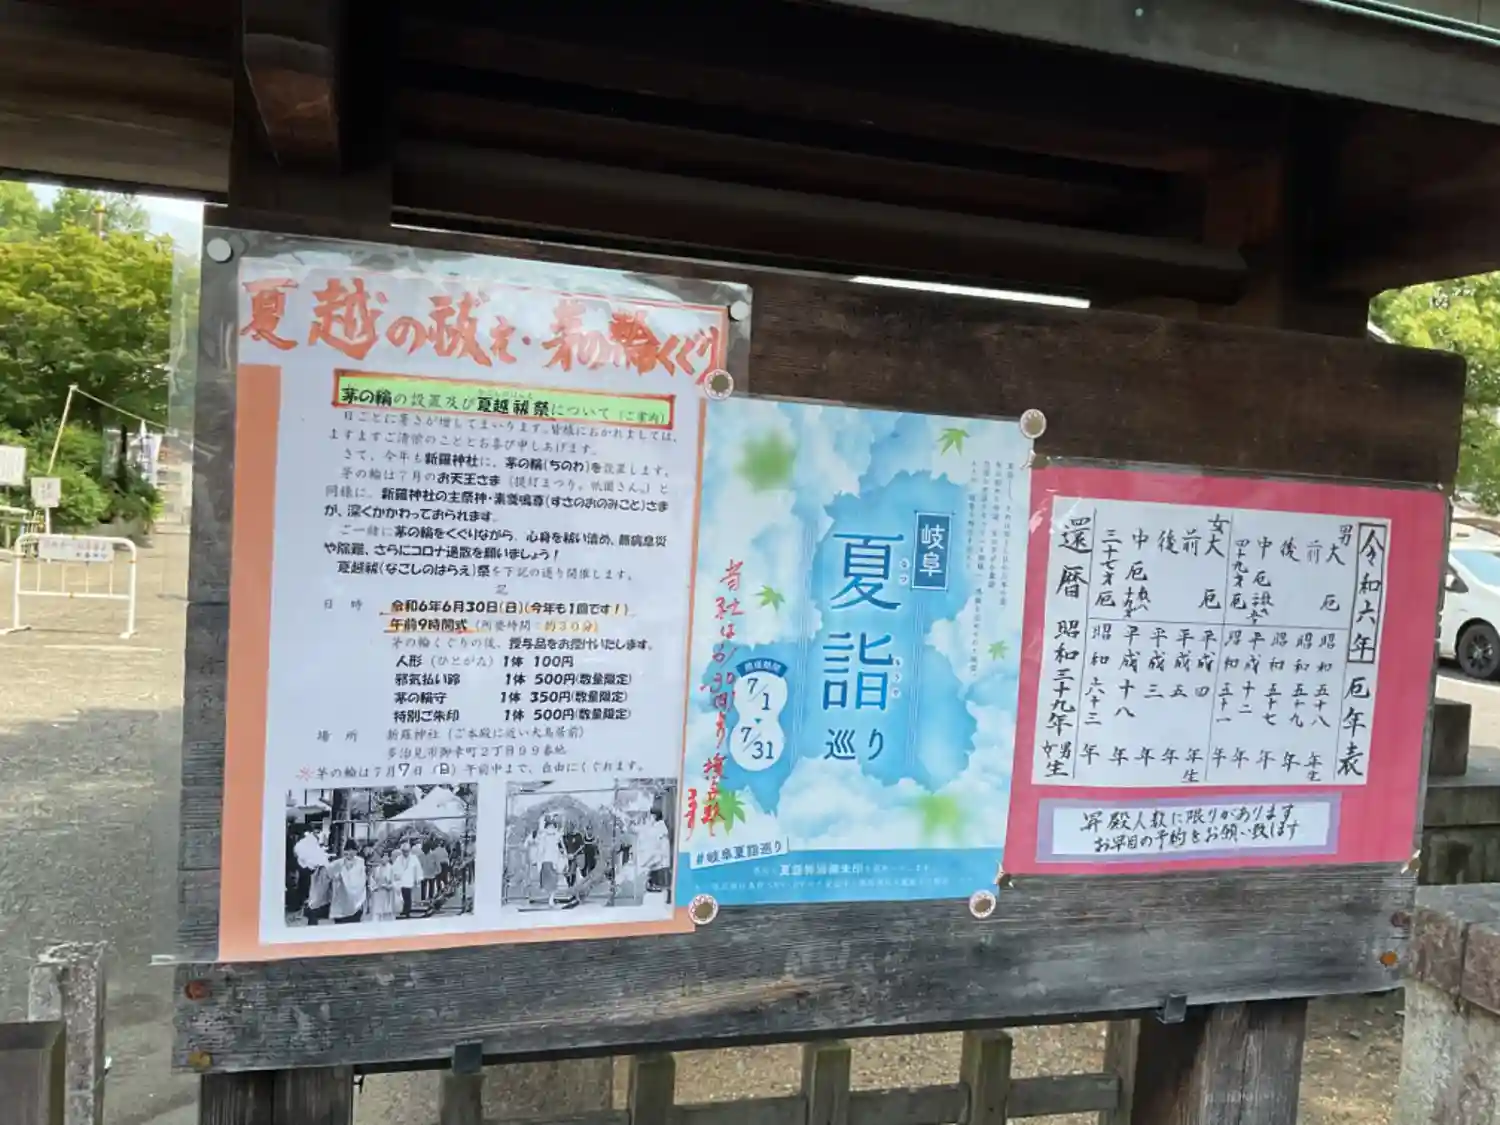 夏越の祓え・茅の輪くぐり
茅の輪の設置及び夏越祓祭について(ご案内)
日ごとに暑さが増してまいります。皆様におかれましては、
ますますご清栄のこととお喜び申しあげます。
さて、今年も新羅神社に、茅の輪(ちのわ)を設置します。
茅の輪は7月のお天王さま(提灯まつり。祇園さん。)と
同様に、新羅神社の主祭神・素戔嗚尊(すさのおのみこと)さま
が、深くかかわっておられます。
ご一緒に茅の輪をくぐりながら、心身を祓い清め、無病息災
や除難、さらにコロナ退散を願いましょう!
夏越祓(なごしのはらえ)祭を下記の通り開催します。
記
日 時 令和6年6月30日(日)(今年も1回です!)
午前9時開式(所要時間:約30分)
茅の輪くぐりの後、授与品をお授けいたします。
人形(ひとがた)1体 100円
邪気払い鈴 1体 500円(数量限定)
茅の輪守 1体 350円(数量限定)
特別ご朱印 1体 500円(数量限定)
場 所 新羅神社(ご本殿に近い大鳥居前)
多治見市御幸町2丁目99番地
※茅の輪は7月7日(日)午前中まで、自由にくぐれます。
岐阜
夏詣
なつ
もうで
巡り
開催期間
7/1
7/31
当社は6/30日より授与致します
#岐阜夏詣巡り
夏詣特別御朱印
令和六年 厄年表
男 大厄 昭和五十八年生
前 昭和五十九年
後 昭和五十七年
中厄 平成十二年
四十九才厄 昭和五十一年
女 大厄 平成四年生
前 平成五年
後 平成三年
中厄 平成十八年
三十七才厄
昭和六十三年
還暦 昭和三十九年 男女生
昇殿人数に限りがあります
お早目の予約をお願い致します